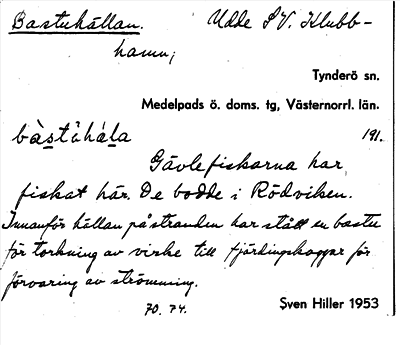 Bastuhällan. Udde S.V. Klubb-
hamn;
Tynderö sn.
Medelpads ö. doms. tg, Västernorrl. län.
191.
Gävlefiskarna har
fiskat här. De bodde i Rödviken.
Innanför hällan på stranden har stått en bastu
för torkning av virke till fjärdingskaggar för
förvaring av strömming.
70. 74. Sven Hiller 1953